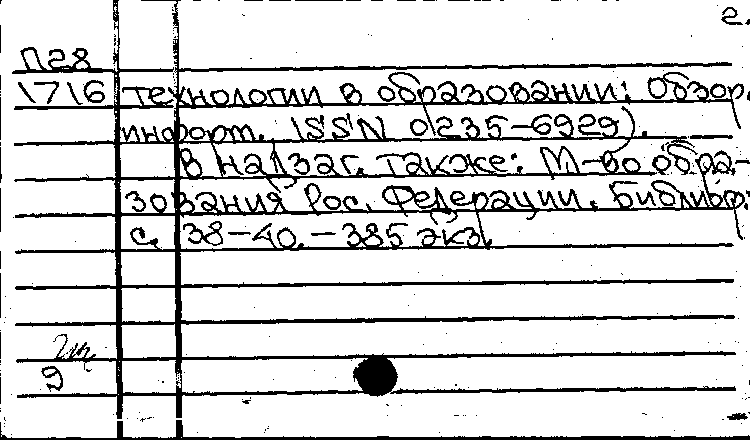 2.
П28
1716 технологии в образовании: Обзор.
информ., ISSN 0235-6929).
В надзаг. также: М-во обра-
зования Рос. Федерации. Библиогр.:
с. 38-40. - 385 экз.
9